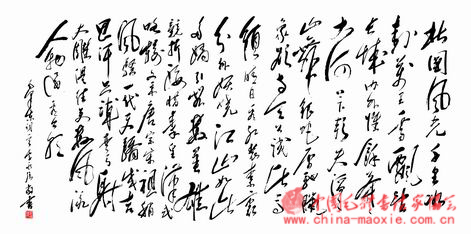 北国风光千里冰
封万里雪飘望
长城内外惟余莽莽
大河上下顿失滔滔
山舞银蛇原驰蜡
象欲与天公试比高
须晴日看红装素裹
分外妖娆江山如此
多娇引无数英雄
竞折腰惜秦皇汉武
略输文采唐宗宋祖稍逊
风骚一代天骄成吉
思汗只识弯弓射
大雕俱往矣数风流
人物还看今朝
www.china-maoxie.com